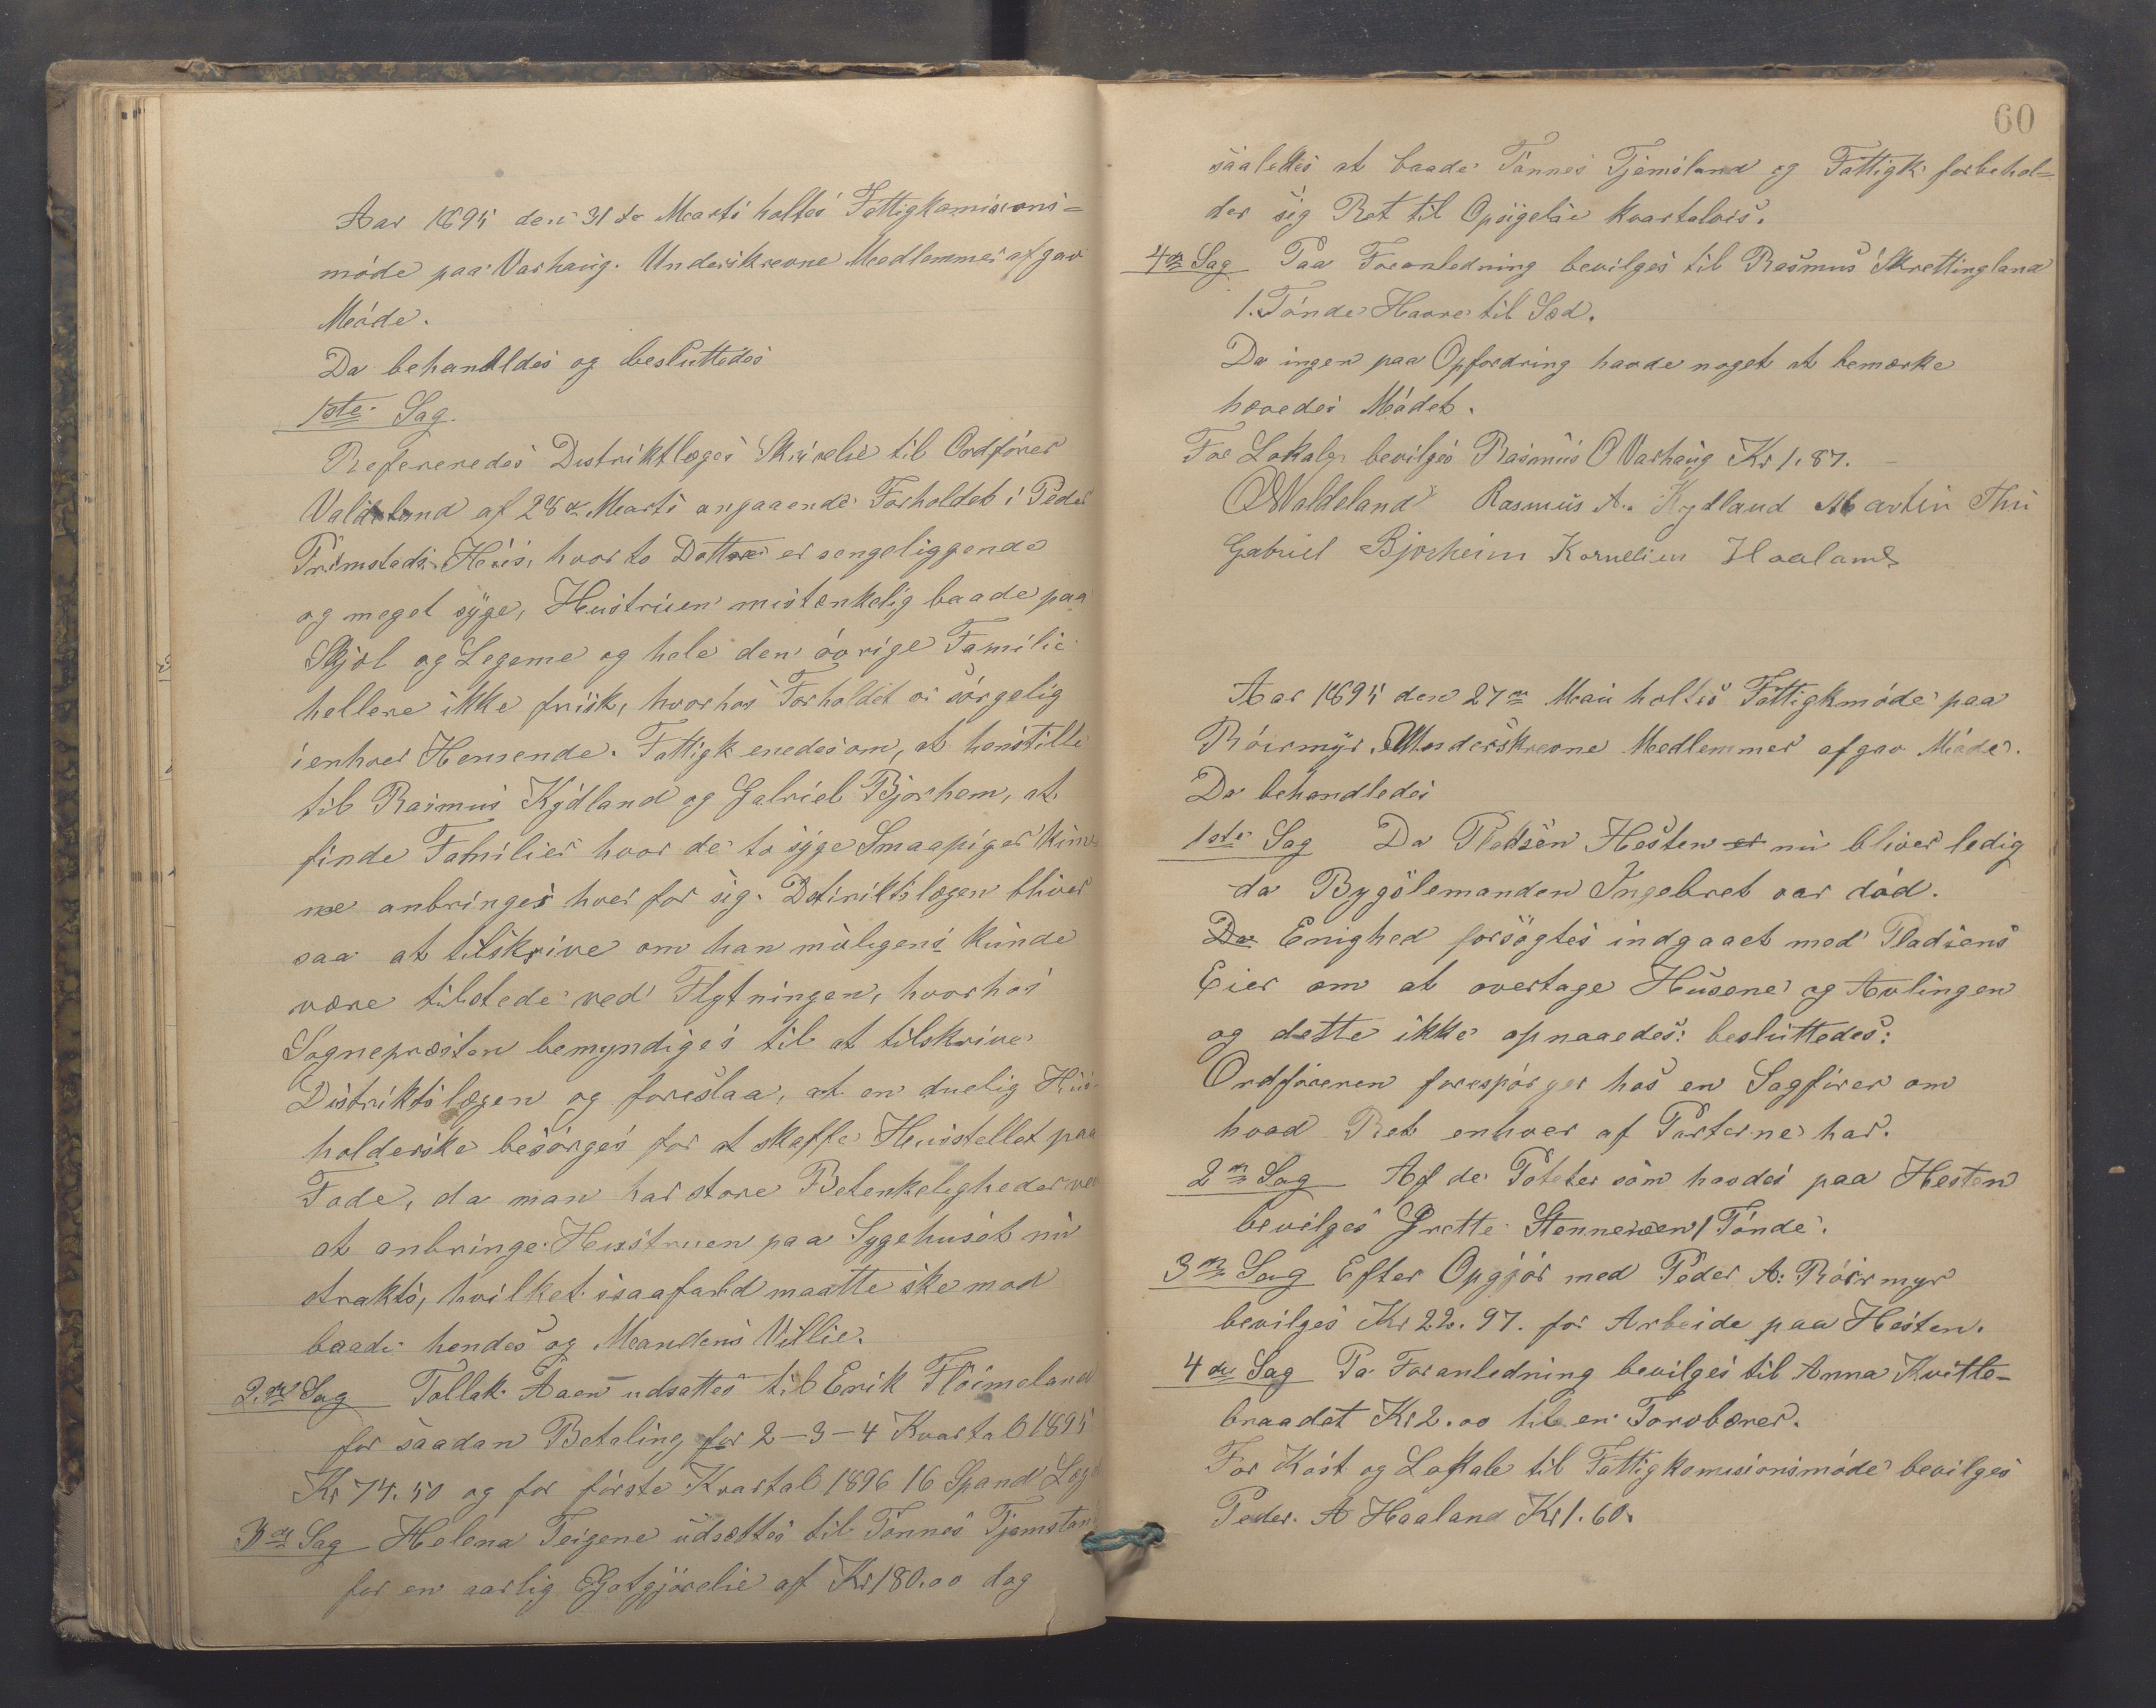 Aar 1895 den 31te Marts holtes Fattigkomisions=
möde paa Varhaug. Underskrevne Medlemmer afgav
Möde.
Da behandldes og besluttedes
1ste Sag.
Refereredes Distriktlæges Skrivelse til Ordförer
Valdeland af 28de Marts angaaende Forholdet i Peder
Primstads Huus, hvor to Dottre er sengeliggende
og meget syge, Hustruen mistenkelig baade paa
Sjæl og Legeme og hele den övrige Familie
hellere ikke frisk, hvorhos Forholdet er sörgelig
ienhver Hensende. Fattigk enedes om, at henstille
til Rasmus Kydland og Gabriel Bjorhem, at
finde Familier hvor de to syge Smaapiger kun-
ne anbringes hver for sig. Distriktslægen bliver
saa at tilskrive om han muligens kunde
være tilstede ved Flytningen, hvorhos
Sognepræsten bemyndiges til at tilskrive
Distriktslægen og foreslaa, at en duelig Hus-
holderske besörges for at skaffe Husstellet paa
Fode, da man har store Betenkeligheder ved
at anbringe Hustruen paa Sygehuset nu
strakts, hvilket isaafald maatte ske mod
baade hendes og Mandens Villie.
2den Sag Tollak Aaen udsattes til Erik Flöimeland
for saadan Betaling for 2-3-4 Kvartal 1895
Kr 74.50 og for förste Kvartal 1896 16 Spand
3de Sag Helena Teigene udsættes til Tönnes Tjemsland
for en aarlig Gotgjörelse af Kr 180.00 dog
60
saaledes at baade Tönnes Tjemsland og Fattigk forbehol=
der sig Ret til Opsigelse kvartalvis.
4de Sag Paa Foranledning bevilges til Rasmus Skrettingland
1. Tönde Havre til Sæd.
Da ingen paa Opfordring havde noget at bemærke
hævedes Mödet.
For Lokale bevilges Rasmus O Varhaug Kr 1.87.
O Valdeland Rasmus A. Kydland Martin Thu
Gabriel Bjorheim Kornelius Haaland
Aar 1895 den 27de Mai holtes Fattigkmöde paa
Röirmyr. Underskrevne Medlemmer afgav Möde.
Da behandledes
1ste Sag Da Pladsen Hesten er nu bliver ledig
da Bygslemanden Ingebret var död.
Da Enighed forsögtes indgaaet med Pladsens
Eier om at overtage Husene og Avlingen
og dette ikke opnaaedes: besluttedes:
Ordföreren forespörger hos en Sagförer om
hvad Ret enhver af Parterne har.
2den Sag Af de Poteter som havdes paa Hesten
bevilges Grette 1 Tönde.
3de Sag Efter Opgjör med Peder A. Röirmyr
bevilges Kr 22.97. for Arbeide paa Hesten.
4de Sag Pa Foranledning bevilges til Anna Kvitte-
braadet Kr 2.00 til en Torvbærer.
For Kost og Lokale til Fattigkomisionsmöde bevilges
Peder A Haaland Kr 1.60.